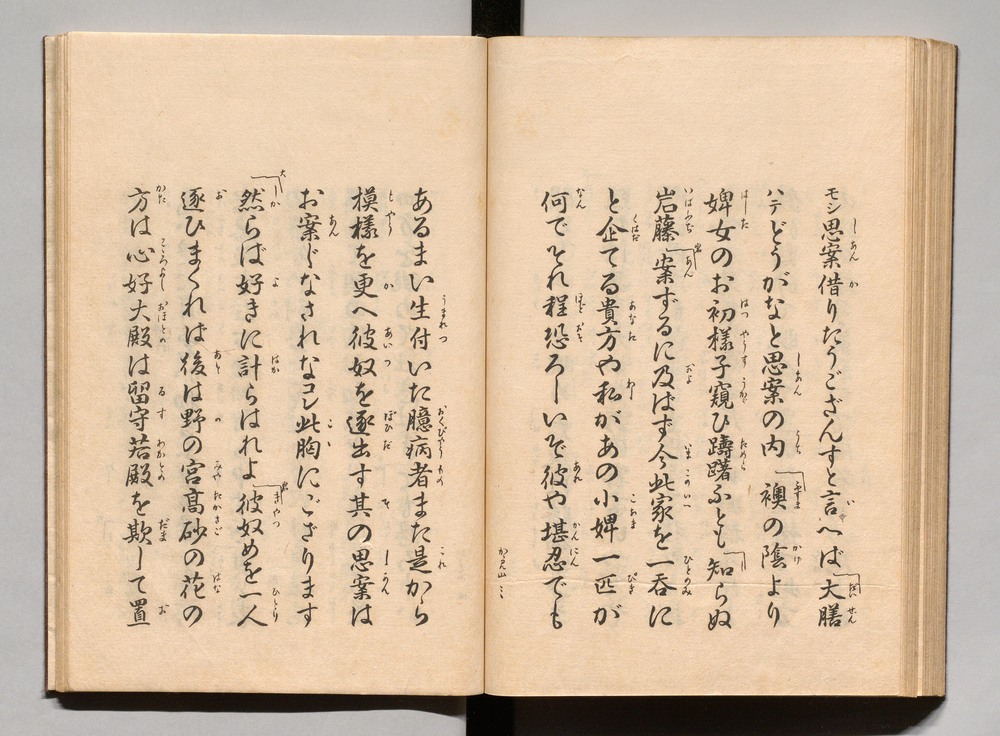 モシ思案借りたうござんすと言へば大膳
ハテどうがなと思案の内「襖の陰より
婢女のお初様子窺ひ躊躇ふとも「知らぬ
岩藤「案ずるに及ばず今此家を一呑に
と企てる貴方や私があの小婢一匹が
何でそれ程恐ろしいぞ彼や堪忍でも
かゞみ山 ミ
あるまい生付いた臆病者また是から
模様を更へ彼奴を逐出す其の思案は
お案じなされなコレ此胸にござります
「然らば好きに計らはれよ「彼奴めを一人
逐ひまくれば後は野の宮高砂の花の
方は心好大殿は留守若殿を欺して置